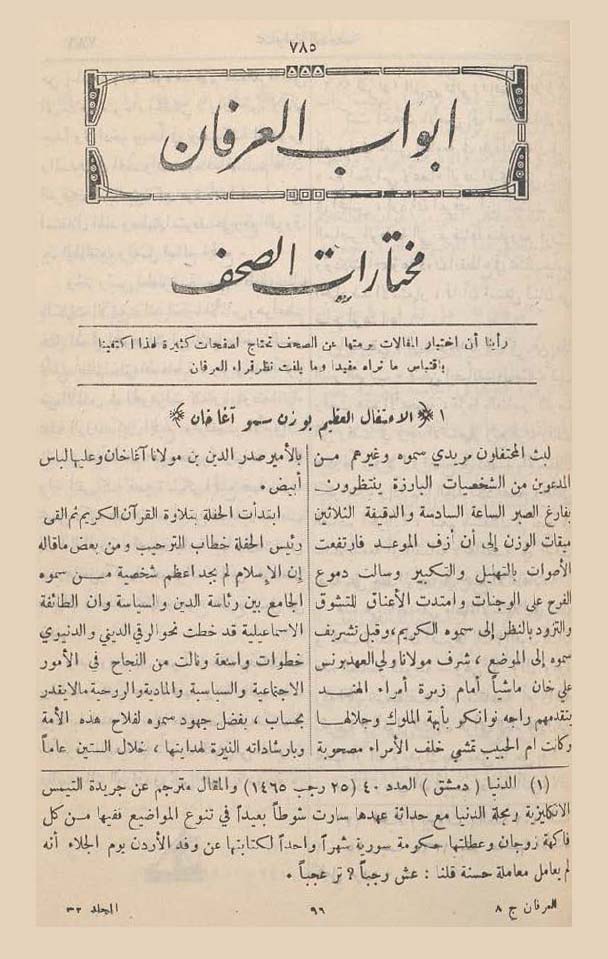 ٧٨٥
ابواب العرفان
مختارات الصحف
رأينا أن اختيار المقالات برمتها عن الصحف تحتاج لصفحات كثيرة لهذا اكتفينا
باقتباس ما نراه مفيدا وما يلفت نظر قراء العرفان
١ ﴿ الاحتفال العظيم بوزن سمو آغا خان ﴾
لبث المحتفلون مريدي سموه وغيرهم من
المدعوين من الشخصيات البارزة ينتظرون
بفارغ الصبر الساعة السادسة والدقيقة الثلاثين
ميقات الوزن إلى أن أزف الموعد فارتفعت
الأصوات بالتهليل والتكبير وسالت دموع
الفرح على الوجنات وامتدت الأعناق للتشوق
والتزود بالنظر إلى سموه الكريم، وقبل تشريف
سموه إلى الموضع، شرف مولانا ولي العهد برنس
علي خان ماشياً أمام زمرة أمراء الهند
يتقدمهم راجه نوانكو بأبهة الملوك وجلالها
وكانت ام الحبيب تمشي خلف الأمراء مصحوبة
بالأمير صدر الدين بن مولانا آغا خان وعليها لباس
أبيض.
ابتدأت الحفلة بتلاوة القرآن الكريم ثم القى
رئيس الحفلة خطاب الترحيب ومن بعض ما قاله
إن الإسلام لم يجد اعظم شخصية من سموه
الجامع بين رئاسة الدين والسياسة وان الطائفة
الاسماعيلية قد خطت نحو الرقي الديني والدنيوي
خطوات واسعة ونالت من النجاح في الأمور
الاجتماعية والسياسية والمادية والروحية ما لا يقدر
بحساب، بفضل جهود سموه لفلاح هذه الأمة
وبارشاداته النيرة لهدايتها، خلال الستين عاماً
(١) الدنيا (دمشق) العدد ٤٠ (٢٥ رجب ١٤٦٥) والمقال مترجم عن جريدة التيمس
الانكليزية ومجلة الدنيا مع حداثة عهدها سارت شوطاً بعيداً في تنوع المواضيع ففيها من كل
فاكهة زوجان وعطلتها حكومة سورية شهراً واحداً لكتابتها عن وفد الأردن يوم الجلاء أنه
لم يعامل معاملة حسنة قلنا: عش رجباً؟ تر عجباً.
العرفان ج ٨ ٩٦ المجلد ٣٢